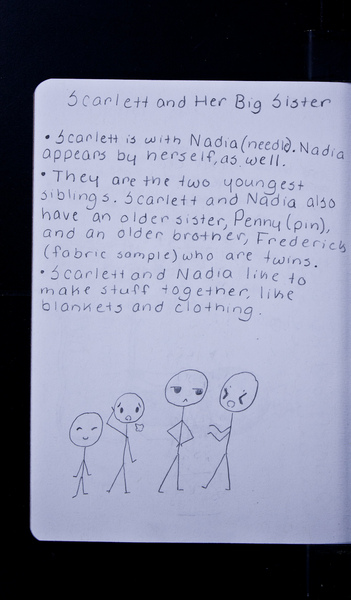 Scarlett and Her Big Sister
• Scarlett is with Nadia (needle). Nadia
appears by herself, as well.
• They are the two youngest
siblings. Scarlett and Nadia also
have an older sister, Penny (pin),
and an older brother, Frederick
(fabric sample) who are twins.
• Scarlett and Nadia like to
make stuff together, like
blankets and clothing.